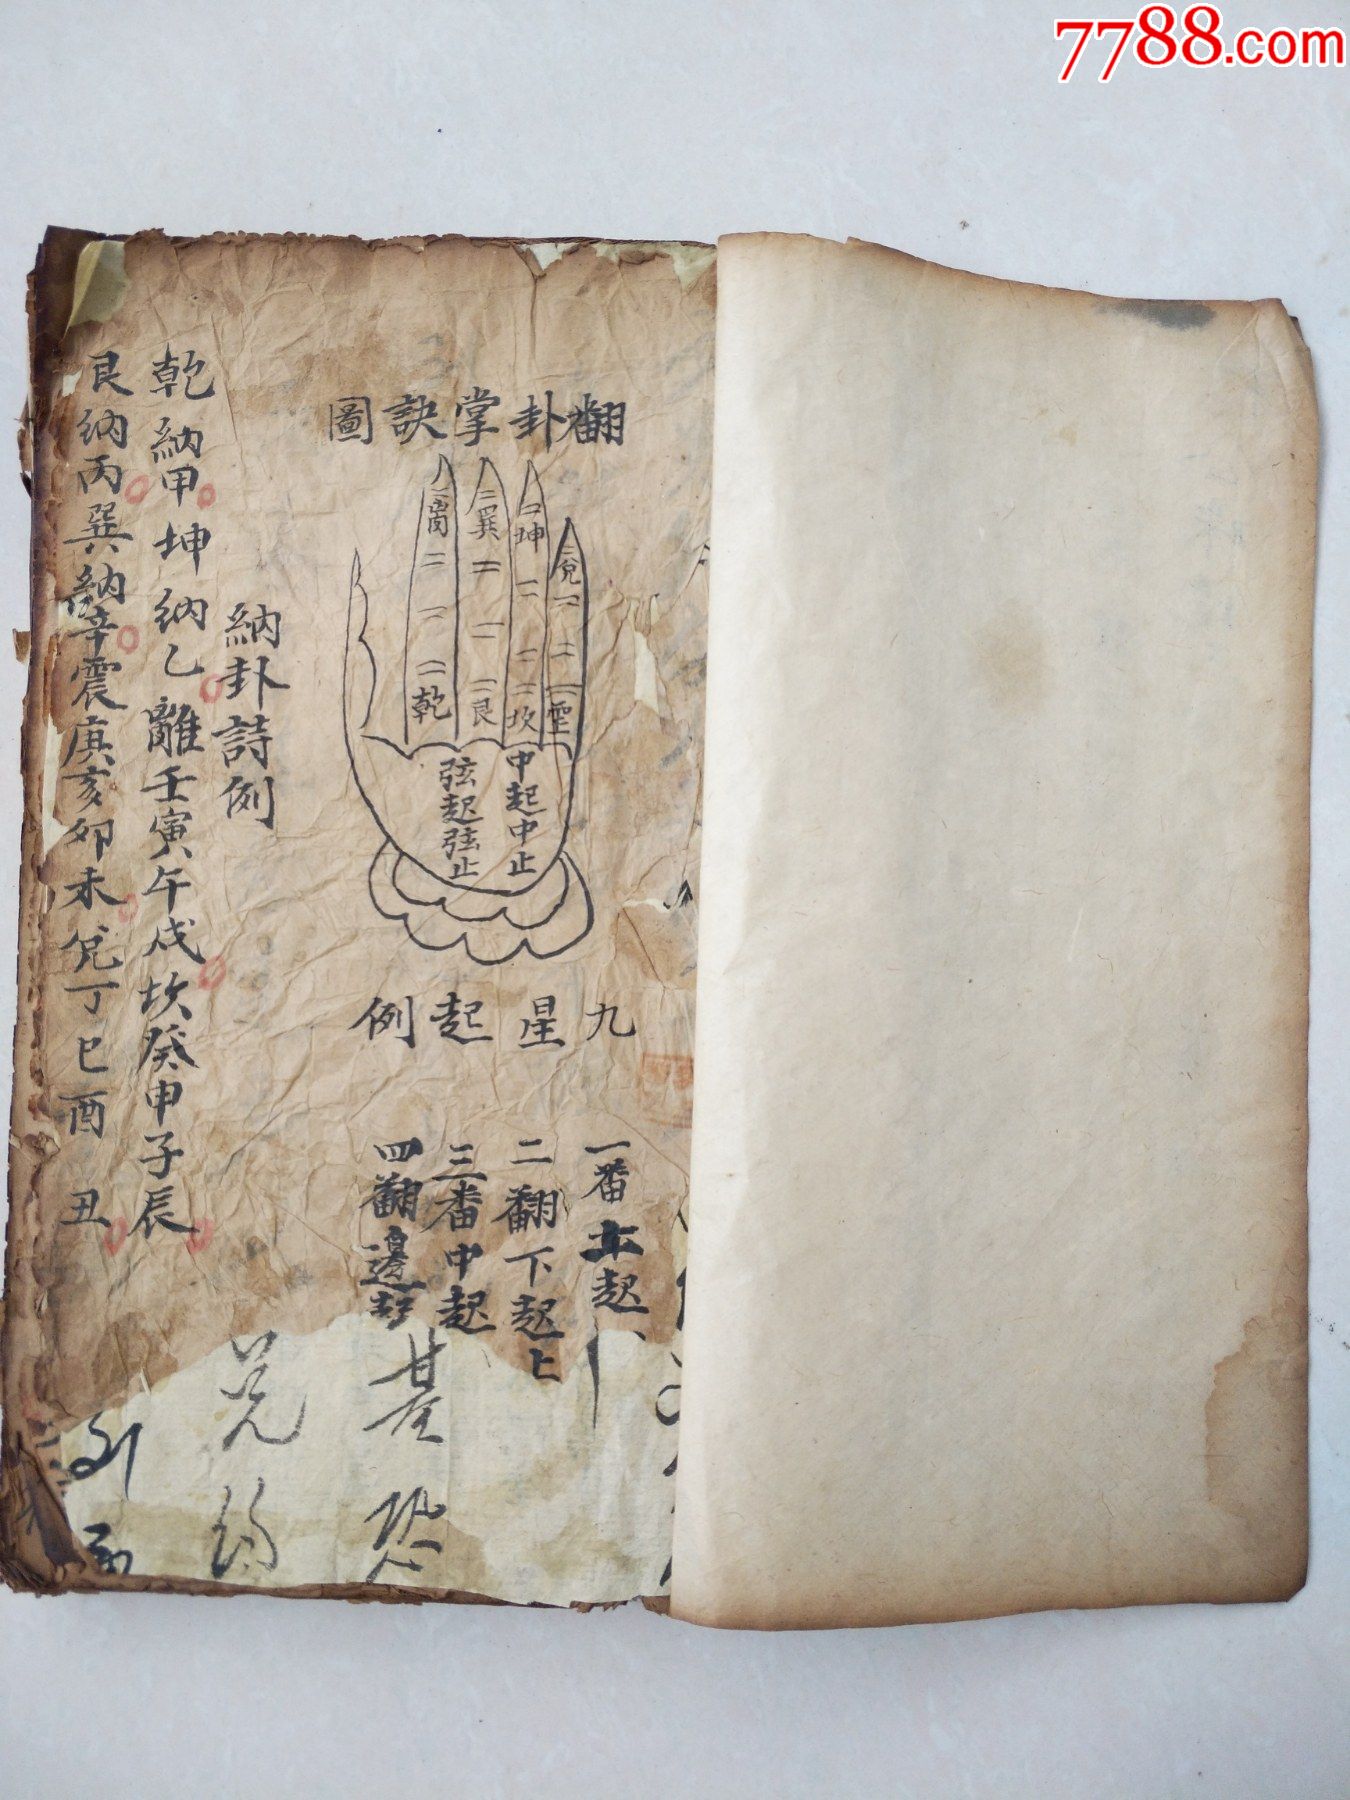 7788.com
翻卦掌訣圖
兌
坤
巽
离
震
坎
艮
乾
中起中止
弦起弦止
九星起例
一番上起
二翻下起上
三番中起
四翻邊起
納卦詩例
乾納甲坤納乙離壬寅午戌坎癸申子辰
艮納丙巽納辛震庚亥卯未兌丁巳酉丑
甚恐